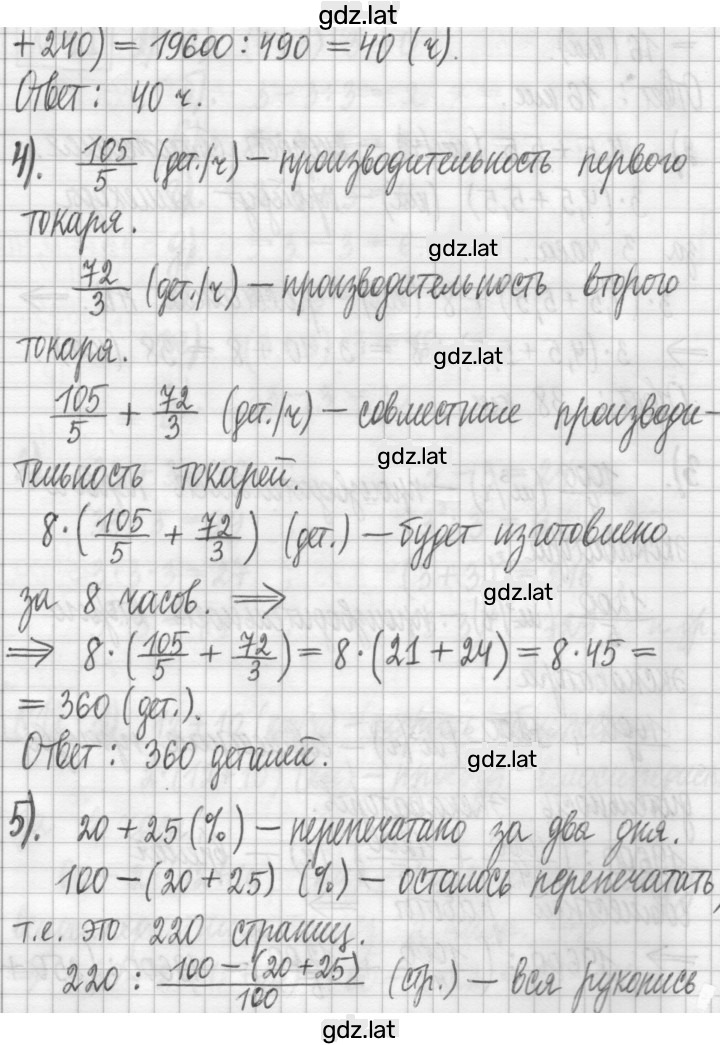 gdz.lat
+240) = 19600 : 490 = 40 (ч).
Ответ: 40 ч.
4). 105/5 (дет./ч) – производительность первого
токаря.
gdz.lat
72/3 (дет./ч) – производительность второго
токаря.
gdz.lat
105/5 + 72/3 (дет./ч) – совместная производи-
gdz.lat
тельность токарей.
8·(105/5 + 72/3) (дет.) – будет изготовлено
за 8 часов. ⇒
gdz.lat
⇒ 8·(105/5 + 72/3) = 8·(21 + 24) = 8·45 =
= 360 (дет.).
Ответ: 360 деталей.
gdz.lat
5). 20 + 25 (%) – перепечатано за два дня.
100 – (20 + 25) (%) – осталось перепечатать,
т.е. это 220 страниц.
220 : (100 – (20 + 25))/100 (стр.) – вся рукопись
gdz.lat